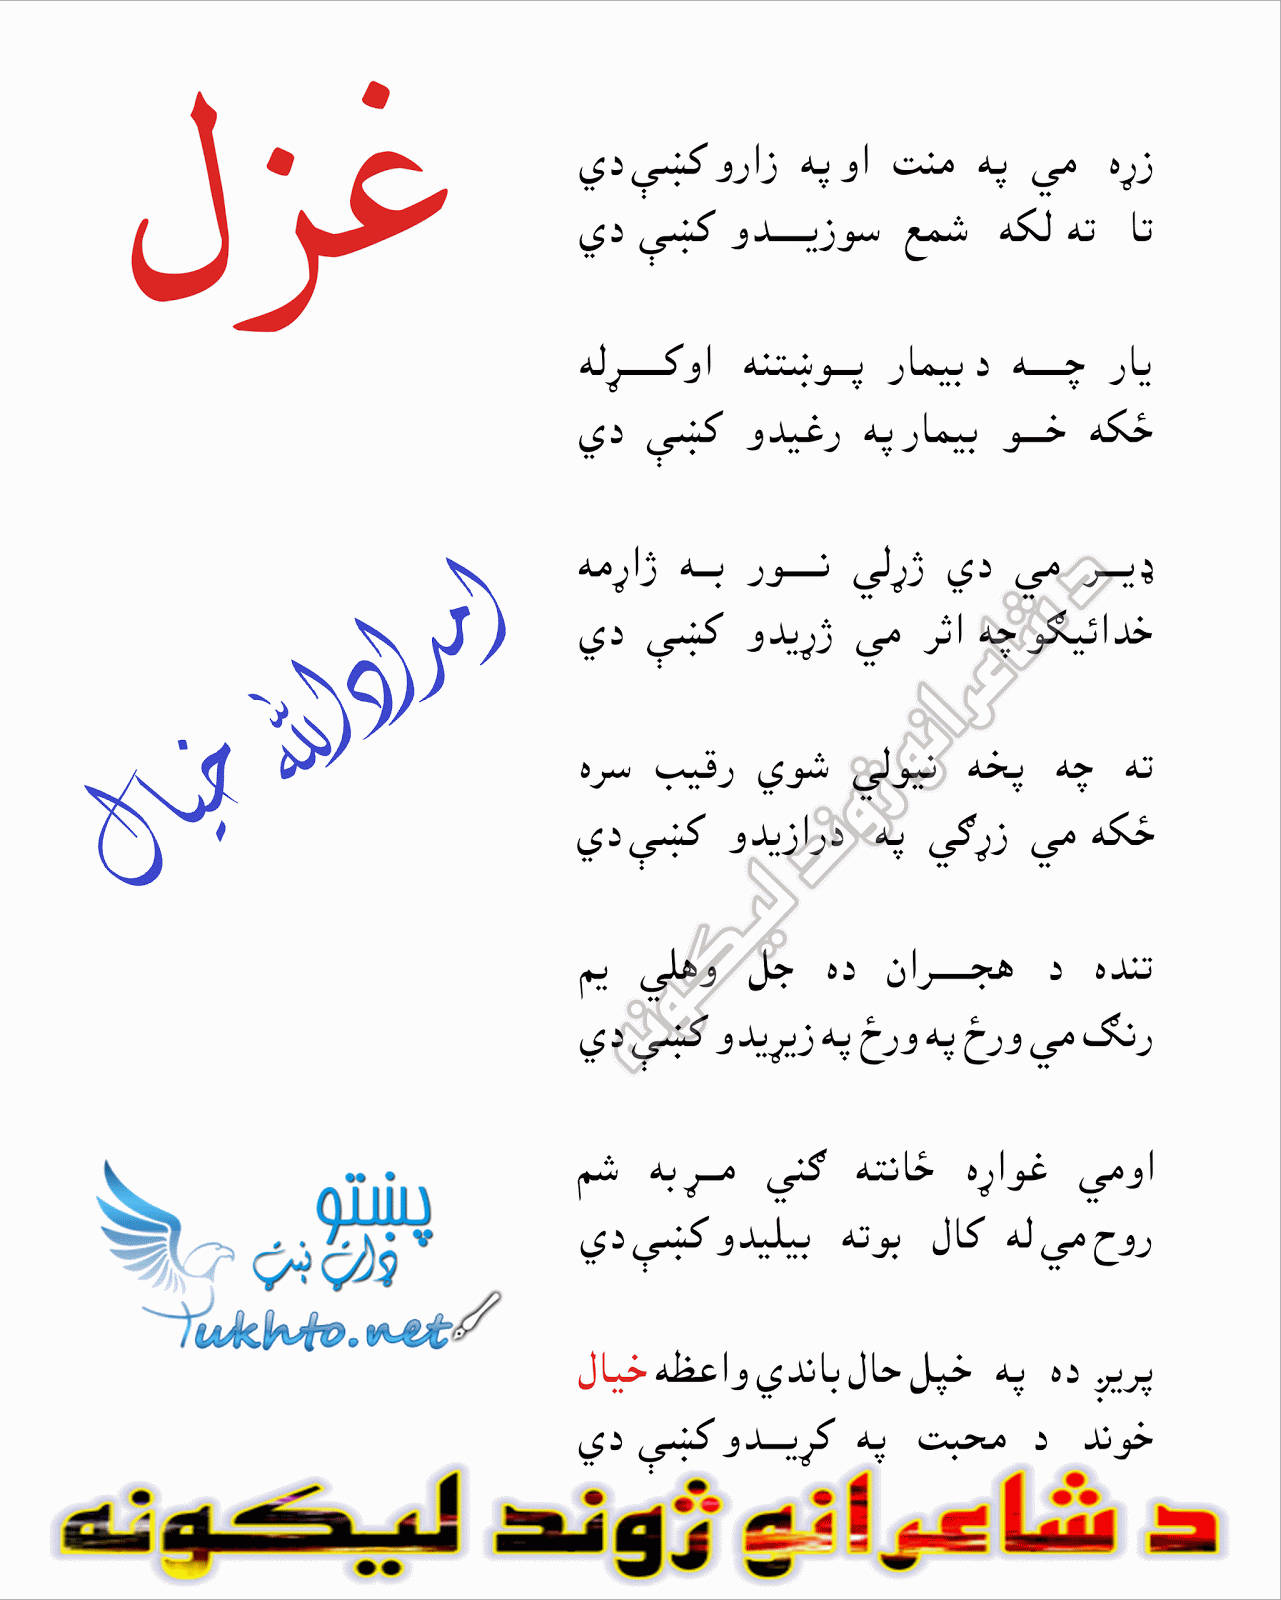 غزل
زړه مي په منت او په زارو کښې دي
تا ته لکه شمع سوزيدو کښې دي
يار چه د بيمار پوښتنه اوکړله
ځکه خو بيمار په رغيدو کښې دي
ډير مي دي ژړلي نور به ژاړمه
خدائيګو چه اثر مي ژړيدو کښې دي
ته چه پخه نيولي شوي رقيب سره
ځکه مي زړګي په درازيدو کښې دي
تنده د هجران ده جل وهلي يم
رنګ مي ورځ په ورځ په زيړيدو کښې دي
اومي غواړه ځانته ګني مړ به شم
روح مي له کال بوته بيليدو کښې دي
پريږده په خپل حال باندي واعظه خيال
خوند د محبت په کړيدو کښې دي
امدادالله خيال
د شاعرانو ژوند ليکونه
پښتو
ډاټ نېټ
Pukhto.net
د شاعرانو ژوند ليکونه